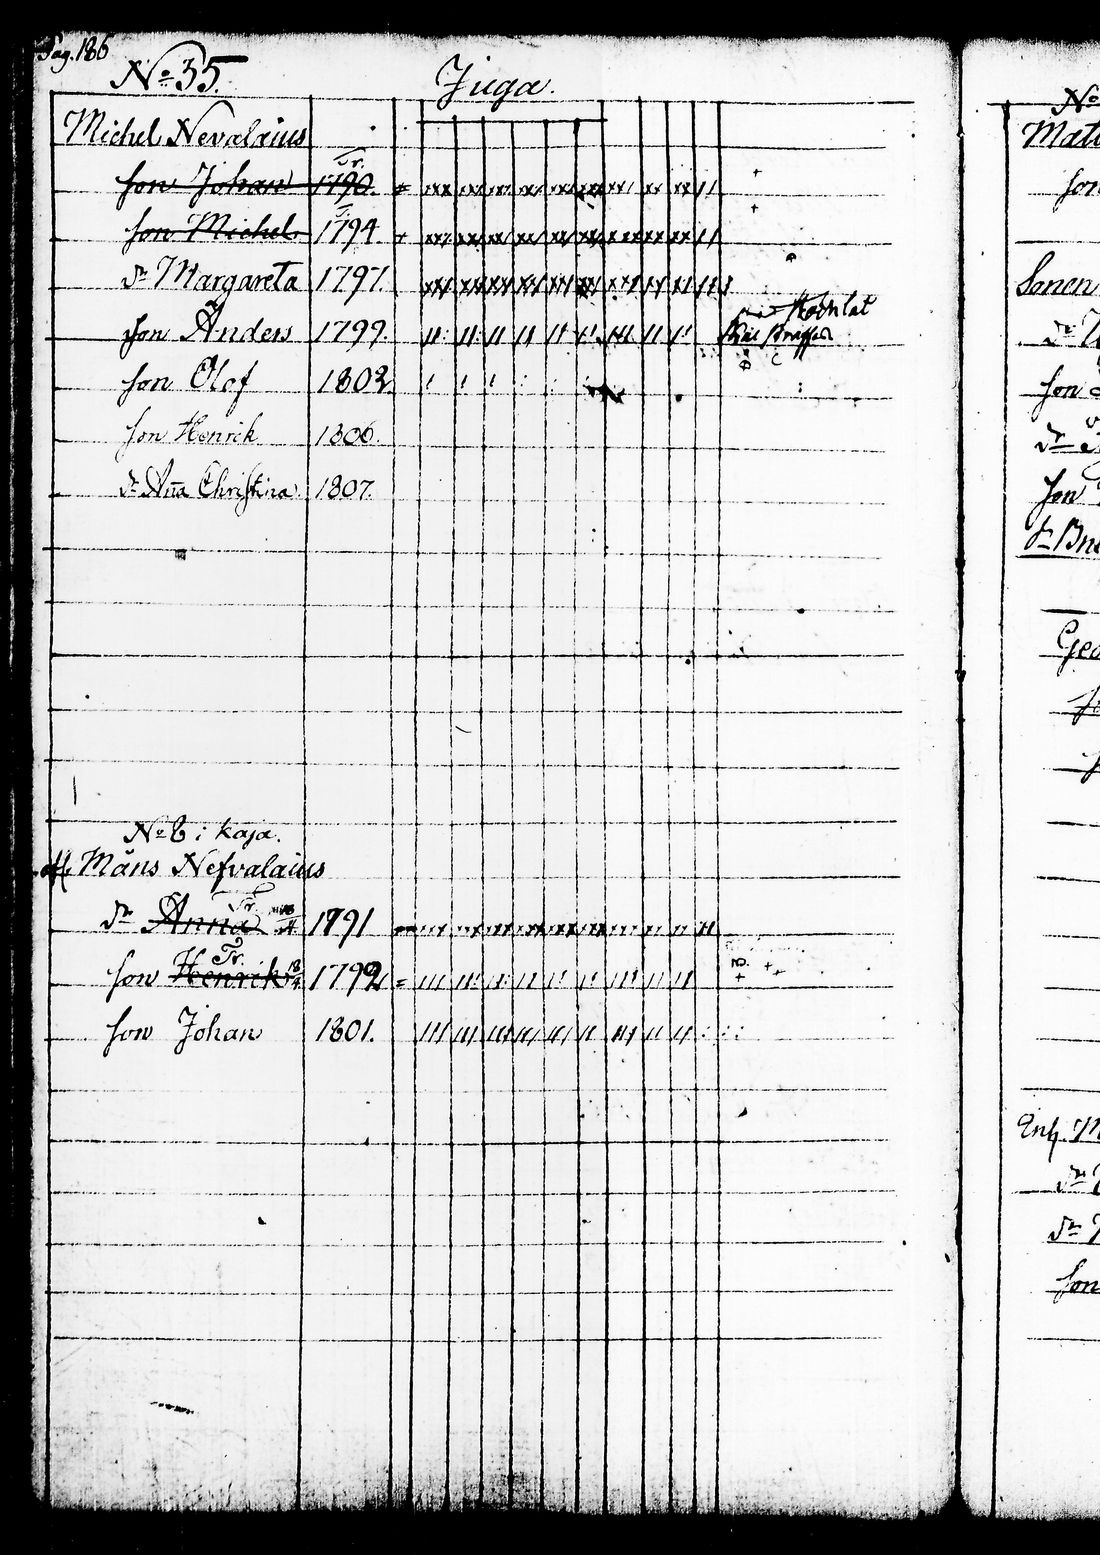 Pag. 186
No 35.
Juga.
Michel Nevalaius
Tr.
Son Johan 1790.
T.
Son Michel 1794
Dr Margareta 1797.
Son Anders 1799.
Son Olof 1802.
Son Henrik 1806.
Dr Aña Christina 1807.
No 6 i kaja.
Måns Nefvalaius
Tr.
Dr Anna 1791
Tr.
Son Henrik 1792
Son Johan 1801.
No
Son
Sonen
Dr
Son
Dr
Son
Enk.
Dr
Dr
Son